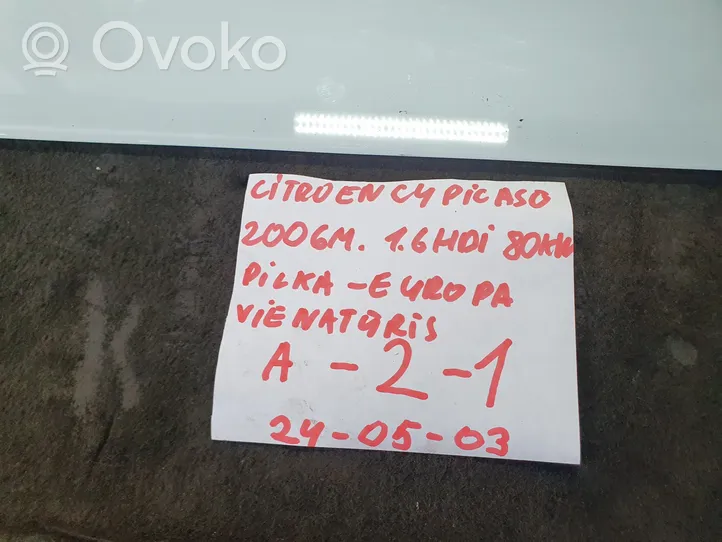 Ovoko
CITROEN C4 PICASO
2006M. 1.6HDI 80KW
PILKA - EUROPA
VIENATŪRIS
A - 2 - 1
24-05-03